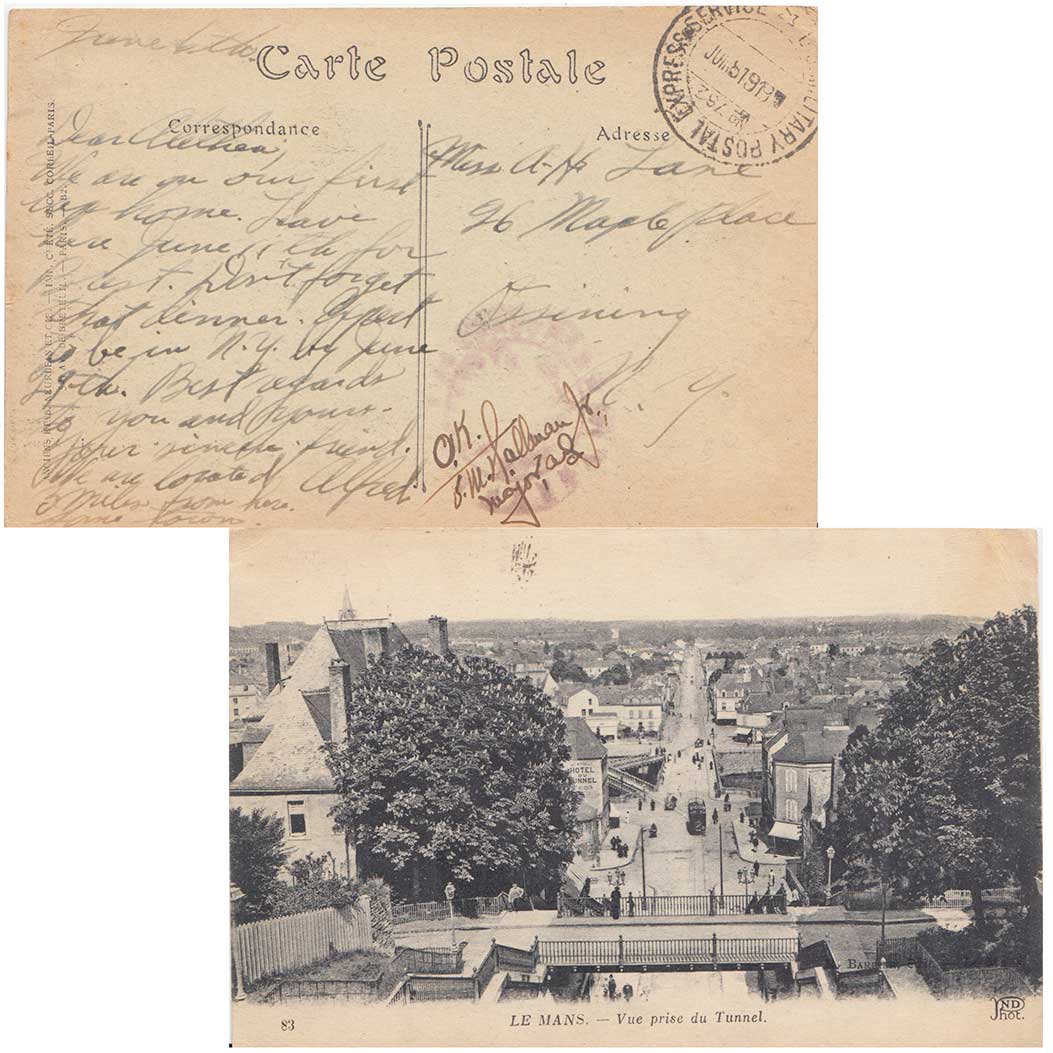 June
Carte Postale
Correspondance
Adresse
MILITARY POSTAL EXPRESS SERVICE
762
Dear Aethea
We are on our first
lap home. Leave
here June 11th for
Brest. Don't forget
that dinner. Expect
to be in N.Y. by June
29th. Best regards
to you and yours.
Your sincere friend.
Alfred
We are located
5 miles from here.
town.
Miss A. H. Lane
26 Maple place
Ossining
N. Y.
O.K.
Hallman Jr.,
Major,
PARIS
HOTEL
TUNNEL
83
LE MANS. — Vue prise du Tunnel.
ND
Phot.